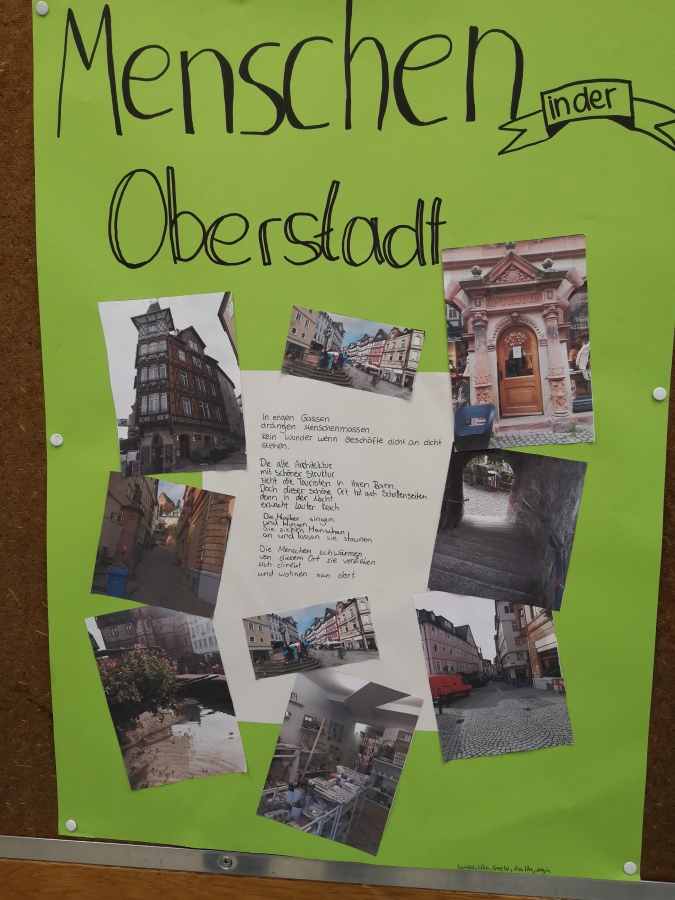 Menschen
in der
Oberstadt
In engen Gassen
drängen Menschenmassen
kein Wunder wenn Geschäfte dicht an dicht
stehen.
Die alte Architektur
mit schöner Struktur
zieht die Touristen in ihren Bann.
Doch dieser schöne Ort hat auch Schattenseiten
denn in der Nacht
erwacht lauter Krach
Die Musiker singen
und klingen
Sie ziehen Menschen
an und lassen sie staunen
Die Menschen schwärmen
von diesem Ort sie verlieben
sich direkt
und wohnen nun dort
Greta, Martha, Maja